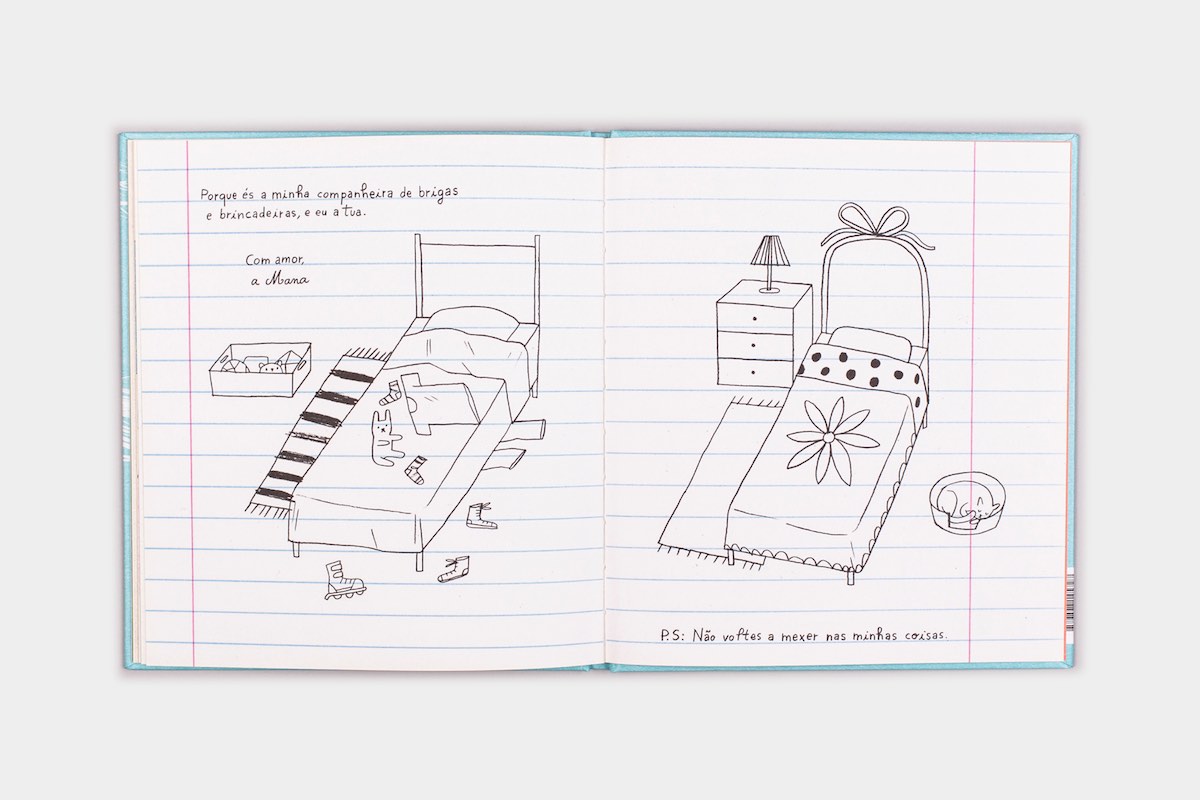 Porque és a minha companheira de brigas
e brincadeiras, e eu a tua.
Com amor,
a Mana
P.S: Não voltes a mexer nas minhas coisas.